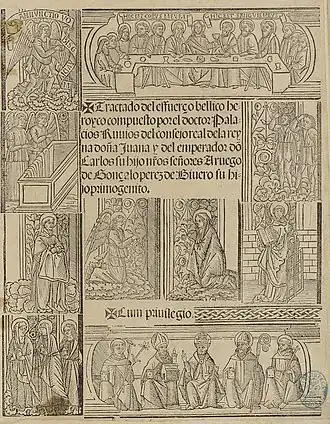 ✠Tractado del esfuerço bellico he
royco compuesto por el doctor Pala
cios Ruuios del consejo real de la rey
na doña Juana y del emperador dõ
Carlos su hijo nr̃os señores A ruego
de Gonçalo perez de Biuero su hi
jo primogenito.
✠Cum priuilegio.